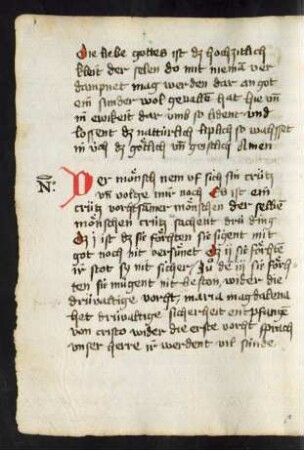 Die liebe gottes ist dz hochzitlich
kleit der selen do mit niemā ver
dampnet mag werden dar an got
ein sunder wol geuallē hat hie vn̄
in ewikeit dar vmb so lident vnd
lossent dz natúrlich liplich so wahsset
in úch dz gótlich vn̄ geistlich Amen
Nᵒ. Der mónsch nem vf sich sin crútz
vn̄ volge mir noch Es ist ein
crútz vorhtsamer mónschen der selbē
mónschen crútz sachent drú ding
Dz j ist dz sie fórhten sie sigent mit
got noch nit versúnet Dz ij sie fórhtē
ir stot sy nit sicher Zuͦ dē iij sie fórh-
ten sie múgent nit beston wider die
drúualtige vorht maria magdalena
het drúualtige sicherheit enpfangē
von cristo wider die erste vorht sprach
vnser herre ir werdent vil súnde